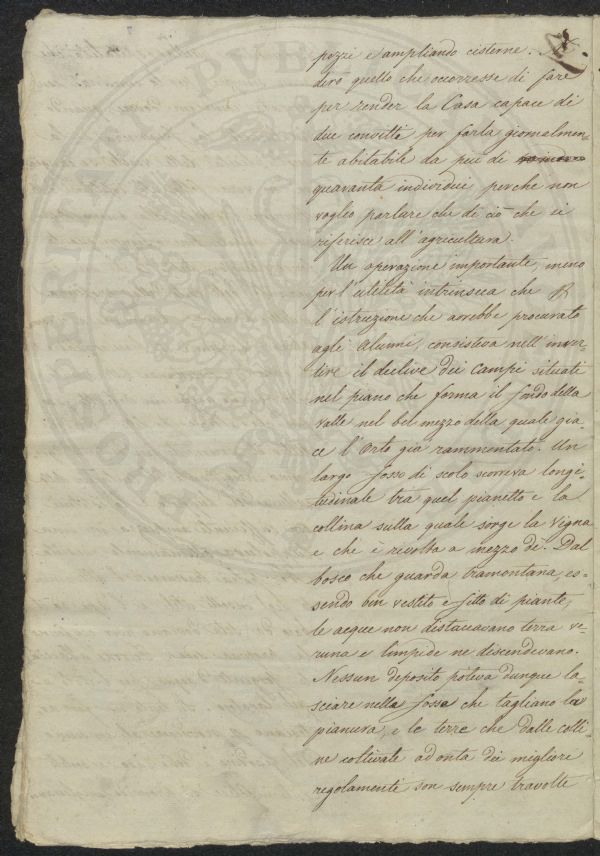 pozzi e ampliando cisterne. Nè
dirò quello che occorresse di fare
per render la Casa capace di
due convitti per farla giornalmen-
te abitabile da più di
quaranta individui, perchè non
voglio parlare che di ciò che si
riferisce all'agricultura.
Un operazione importante, meno
per l'utilità intrinseca che p
l'istruzione che avrebbe procurato
agli Alunni, consisteva nell'inver-
tire il declive dei Campi situati
nel piano che forma il fondo della
Valle nel bel mezzo della quale gia-
ce l'Orto già rammentato. Un
largo fosso di scolo scorreva longi-
tudinale tra quel pianetto e la
collina sulla quale sorge la Vigna
e che è rivolta a mezzo dì. Dal
bosco che guarda tramontana, es-
sendo ben vestito e fitto di piante,
le acque non distaccavano terra ve-
runa e limpide ne discendevano.
Nessun deposito poteva dunque la-
sciare nella fossa che tagliano la
pianura, e le terre che dalle colli-
ne coltivate ad onta dei migliori
regolamenti son sempre travolte